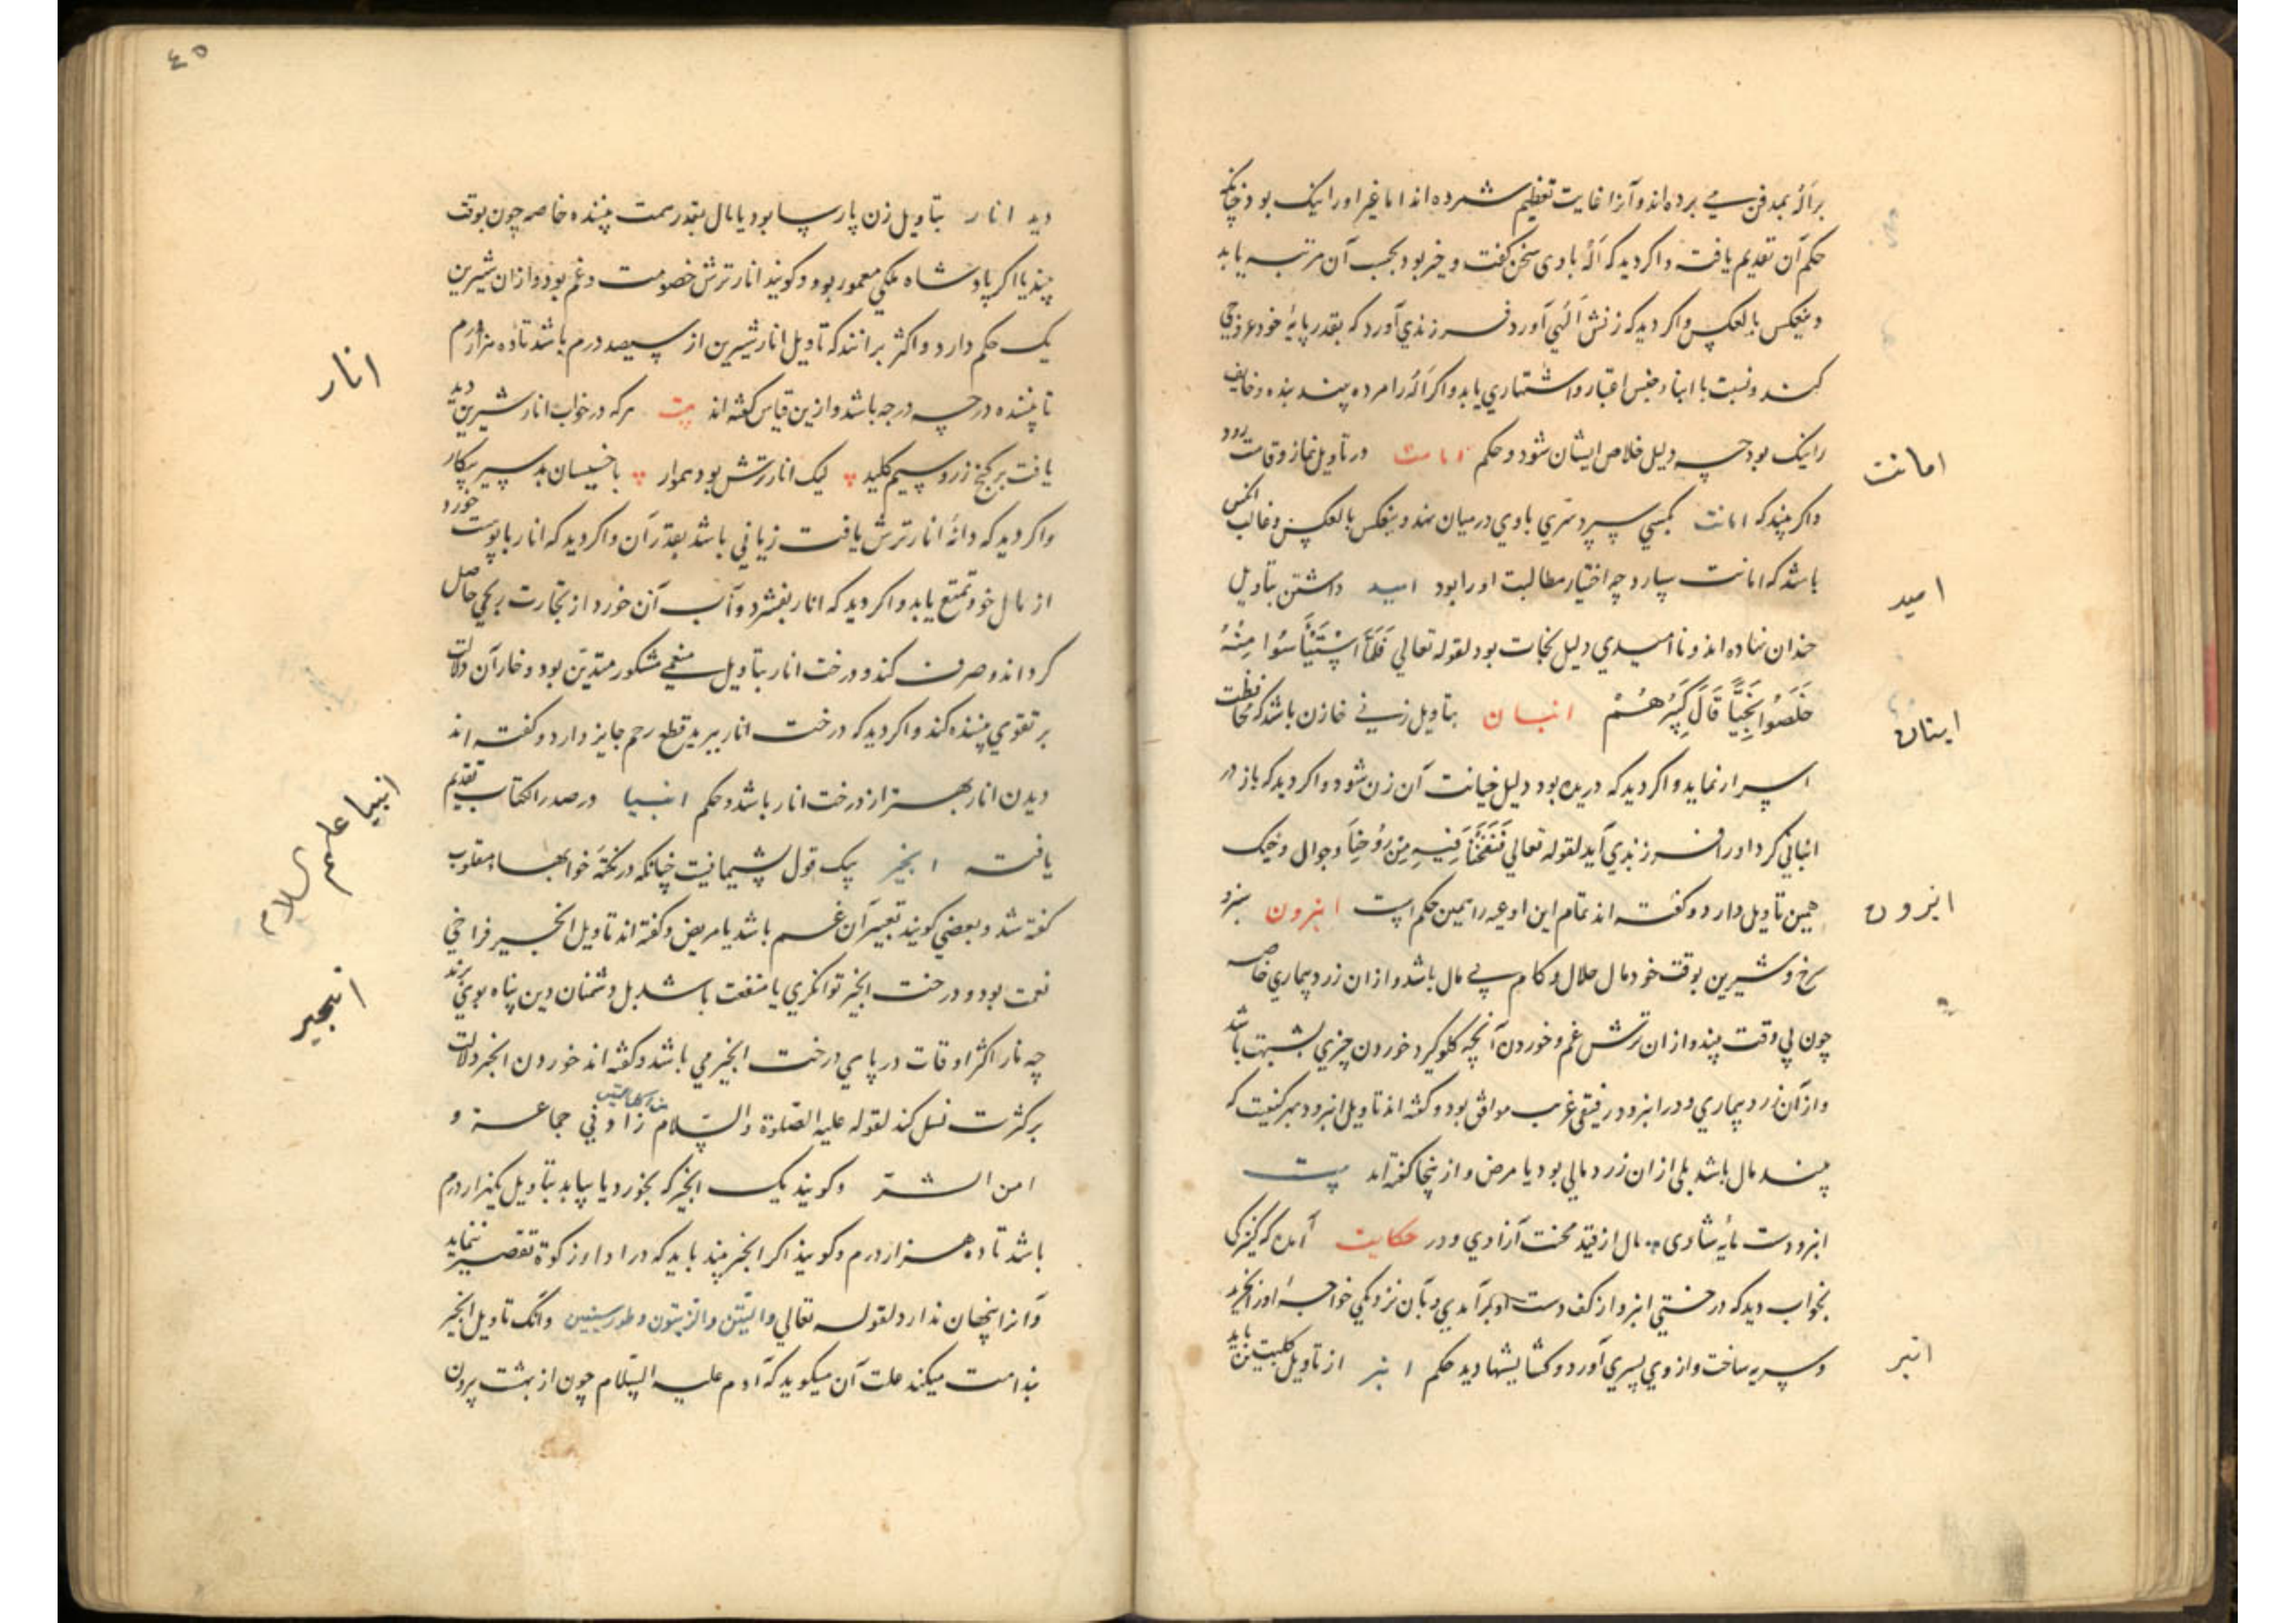 بدفن می برده‌اند و آنرا غایت تعظیم شمرده‌اند اما غیر او را نیک بود چنانکه
حکم آن تقدیم یافت و اکر دید که با وی سخن کفت و خیر بود بحسب آن مرتبه یابد
و بعکس بالعکس و اکر دید که زنش آورد فرزندی آورد که بقدر پایهٔ خود عروجی
کند و نسبت با ابناء جنس اعتبار و اشتهاری یابد و اکر را مرده بیند بنده و خایف
را نیک بود چه دلیل خلاص ایشان شود و حکم امامت در تاویل نماز و قامت رود
امانت
و اکر بیند که امانت بکسی سپرد سری با وی در میان نهد و بعکس بالعکس و غالب آنکس
باشد که امانت سپارد چه اختیار مطالبت او را بود امید داشتن بتاویل
امید
نهاده‌اند و ناامیدی دلیل نجات بود لقوله تعالی فَلَمَّا اسْتَيْأَسُوا مِنْهُ
خَلَصُوا نَجِيًّا قَالَ كَبِيرُهُمْ انبان بتاویل زنی خازن باشد که محافظت
انبان
اسرار نماید و اکر دید که دریده بود دلیل خیانت آن زن شود و اکر دید که باد در
انبانی کرد او را فرزندی آید لقوله تعالی فَنَفَخْنَا فِيهِ مِنْ رُوحِنَا و جوال و خیک
همین تاویل دارد و کفته‌اند تمام این اوعیه را همین حکم است امرود سبز و
امرود
سرخ و شیرین بوقت خود مال حلال و کام باشد و از آن زرد بیماری خاصه
چون بی وقت بیند و از آن ترش غم و خوردن آنچه کلوکیرد خوردن چیزی بشبهت باشد
و از آن زرد بیماری رفیقی غریب موافق بود و کفته‌اند تاویل امرود
بیند مال باشد بلی از آن زرد مالی بود با مرض و از اینجا کفته‌اند بیت
امرودت مایهٔ شادی و مال از قید محنت آزادی و در حکایت آمده که کنیزکی
بخواب دید که درختی امرود از کف دست او برآمدی و بآن نزدیکی خواجه او را بخرید
و سریه ساخت و از وی پسری آورد و کشایشها دید حکم انبر از تاویل کلبتین
انبر
٤٥
دید انار بتاویل زن پارسا بود یا مال بقدر همت بیننده خاصه چون بوقت
چیند یا اکر پادشاه ملکی معمور بود و کویند انار ترش خصومت و غم بود و از آن شیرین
یک حکم دارد و اکثر برانند که تاویل انار شیرین از سیصد درم باشد تا ده هزار درم
انار
تا بیننده در چه درجه باشد و ازین قیاس کفته‌اند بیت هرکه در خواب انار شیرین دید
یافت بر کنج زر و سیم کلید لیک انار ترش بود هموار با خسیسان بد سیر پیکار
و اکر دید که دانهٔ انار ترش یافت زیانی باشد بقدر آن و اکر دید که انار با پوست خورد
از مال خود تمتع یابد و اکر دید که انار بفشرد و آب آن خورد از تجارت ربحی حاصل
کرداند و صرف کند و درخت انار بتاویل منعمی مشکور متدین بود و خار آن دلالت
بر تقوی بیننده کند و اکر دید که درخت انار ببرید قطع رحم جایز دارد و کفته‌اند
دیدن انار بهتر از درخت انار باشد و حکم انبیا در صدر الکتاب تقدیم
انبیا علیهم السلام
یافته انجیر بیک قول پشیمانیست چنانکه در نکتهٔ خوابها مقلوب
کفته شد و بعضی کویند تعبیر آن غم باشد یا مرض و کفته‌اند تاویل انجیر فراخی
نعمت بود و درخت انجیر توانکری با منفعت باشد بل دشمنان دین پناه بوی برند
انجیر
چه مار اکثر اوقات در پای درخت انجیر می باشد و کفته‌اند خوردن انجیر دلالت
بر کثرت نسل کند لقوله علیه الصلوة والسلام و
امن الشر و کویند یک انجیر که بخورد یا بیابد بتاویل یکهزار درم
باشد تا ده هزار درم و کویند اکر انجیر بیند باید که در ادای زکوة تقصیر ننماید
و آنرا پنهان ندارد لقوله تعالی والتین والزیتون وطور سینین و آنک تاویل انجیر
بندامت میکند علت آن میکوید که آدم علیه السلام چون از بهشت بیرون